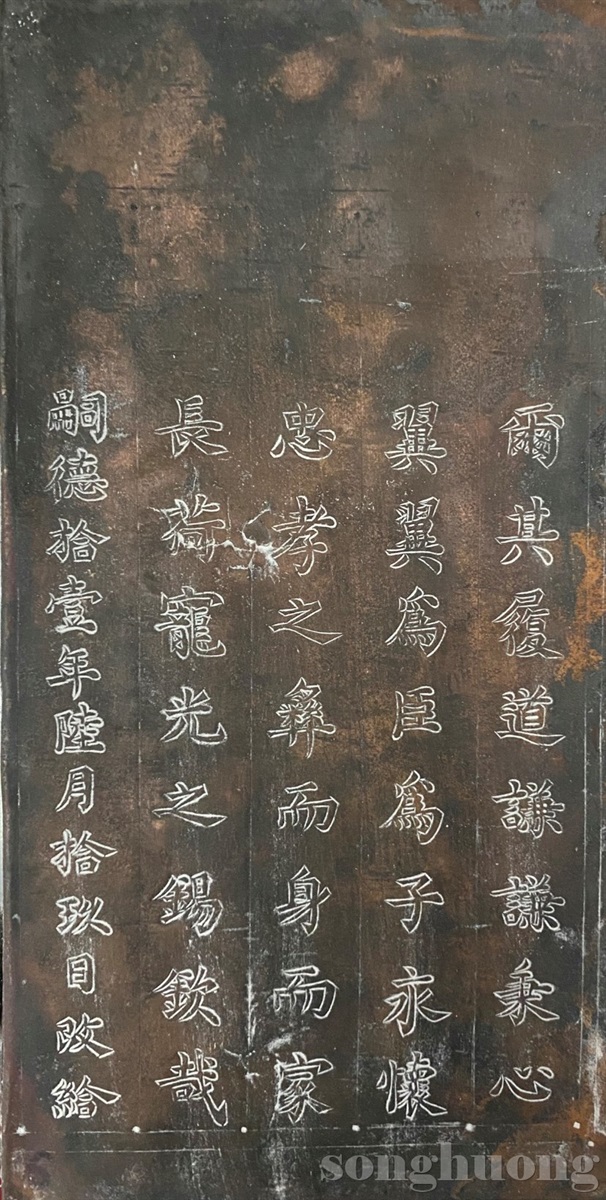 爾其履道謙謙秉心
翼翼爲臣爲子永懷
忠孝之彝而身而家
長荷寵光之錫欽哉
嗣德拾壹年陸月拾玖日改給
songhuong